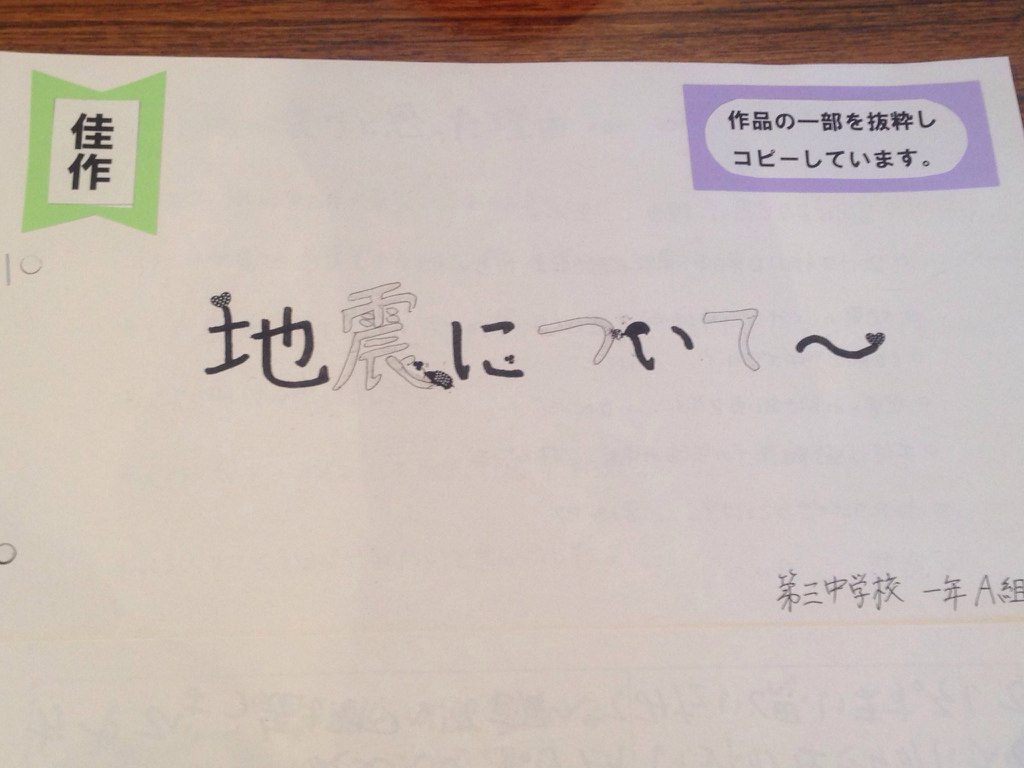 佳作
作品の一部を抜粋し
コピーしています。
地震について～
第三中学校 一年 A組